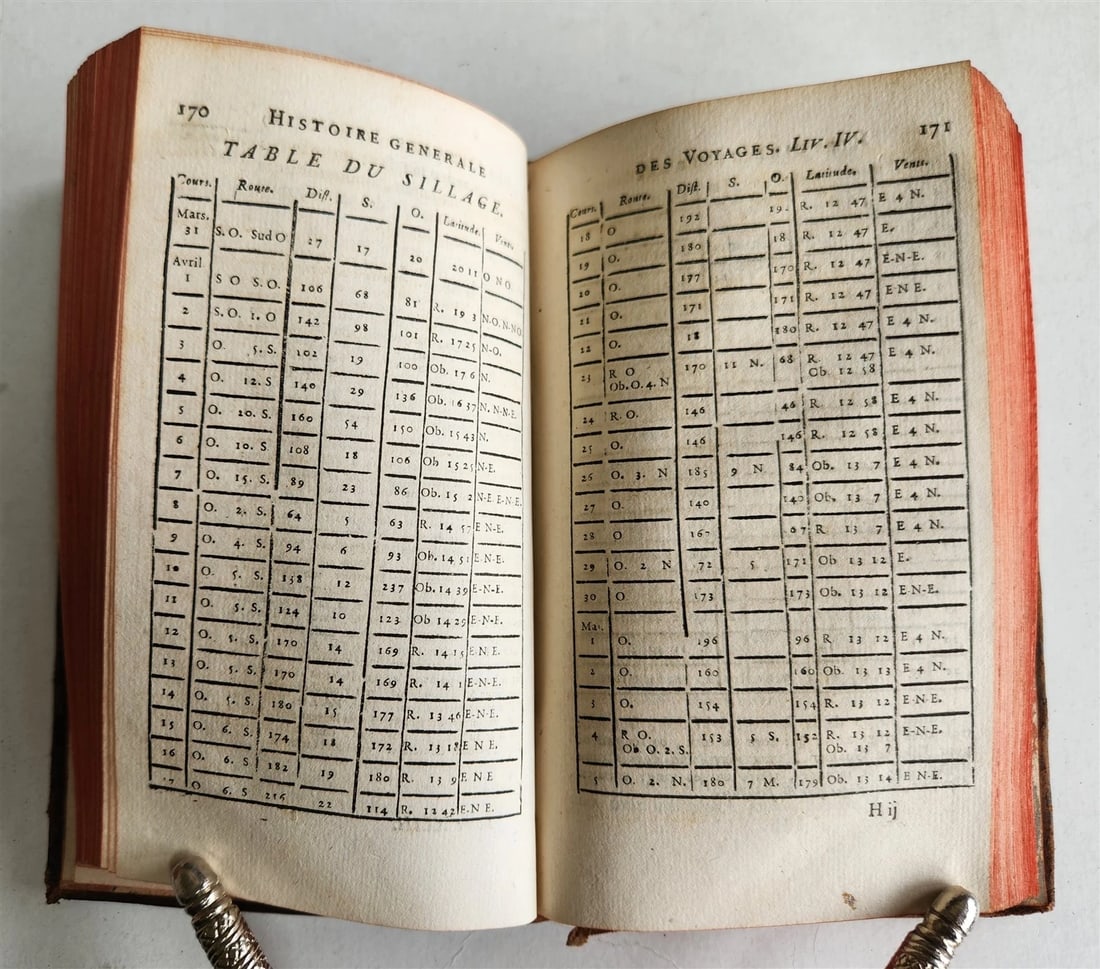 170 HISTOIRE GENERALE
TABLE DU SILLAGE.
Cours. Route. Dist. S. O. Latitude. Vents.
Mars.
31 S. O. Sud O 27 17 20 20 11 O N O
Avril
1 S O S.O. 106 68 81 R. 19 3 N-O. N-NO
2 S.O. 1. O 142 98 101 R. 17 25 N-O.
3 O. 5. S. 102 19 100 Ob. 17 6 N.
4 O. 12. S 140 29 136 Ob. 16 37 N. N-N-E.
5 O. 20. S. 160 54 150 Ob. 15 43 N.
6 O. 10. S. 108 18 106 Ob 15 25 N-E.
7 O. 15. S. 89 23 86 Ob. 15 2 N-E. E-N-E.
8 O. 2. S. 64 5 63 R. 14 57 E N-E.
9 O. 4. S. 94 6 93 Ob. 14 51 E-N-E.
10 O. 5. S. 138 12 237 Ob. 14 39 E-N-E.
11 O. 5. S. 124 10 123 Ob 14 29 E-N-E.
12 O. 5. S. 170 14 169 R. 14 15 E-N-E.
13 O. 5. S. 170 14 169 R. 14 1 E-N-E.
14 O. 5. S. 180 15 177 R. 13 46 E-N-E.
15 O. 6. S. 174 18 172 R. 13 18 E N E.
16 O. 6. S 182 19 180 R. 13 9 E N E
O. 6. S 216 22 114 R. 12 42 E-N E.
DES VOYAGES. LIV. IV. 171
Cours. Route. Dist. S. O. Latitude. Vents.
18 O 192 19 R. 12 47 E 4 N.
19 O. 180 18 R. 12 47 E.
20 O. 177 170 R. 12 47 E-N-E.
21 O. 171 171 R. 12 47 E N E.
22 O. 18 180 R. 12 47 E 4 N.
23 R O 170 11 N. 68 R. 12 47 E 4 N.
Ob. O. 4. N Ob 12 58
24 R. O. 146 46 R 12 58 E 4 N.
25 O. 146 146 R. 12 58 E 4 N.
26 O. 3. N 185 9 N. 84 Ob. 13 7 E 4 N.
27 O. 140 140 Ob. 13 7 E 4 N.
28 O 167 67 R 13 7 E 4 N.
29 O. 2 N 72 5 171 Ob 13 12 E.
30 O 173 173 Ob. 13 12 E N-E.
Mai.
1 O. 196 96 R 13 12 E 4 N.
2 O. 160 160 Ob. 13 13 E 4 N.
3 O. 154 154 R. 13 12 E-N-E.
4 R O. 153 5 S. 152 R. 13 12 E-N-E.
Ob O. 2. S. Ob. 13 7
5 O. 2. N. 180 7 M. 179 Ob. 13 14 E N-E.
H ij